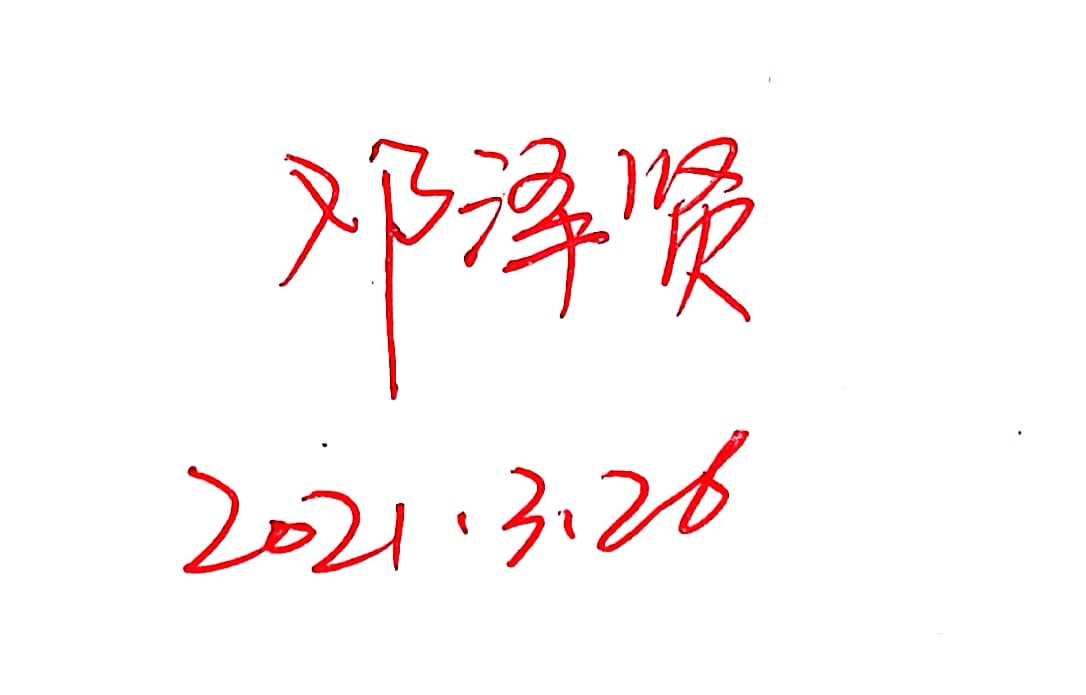 邓泽贤
2021.3.26